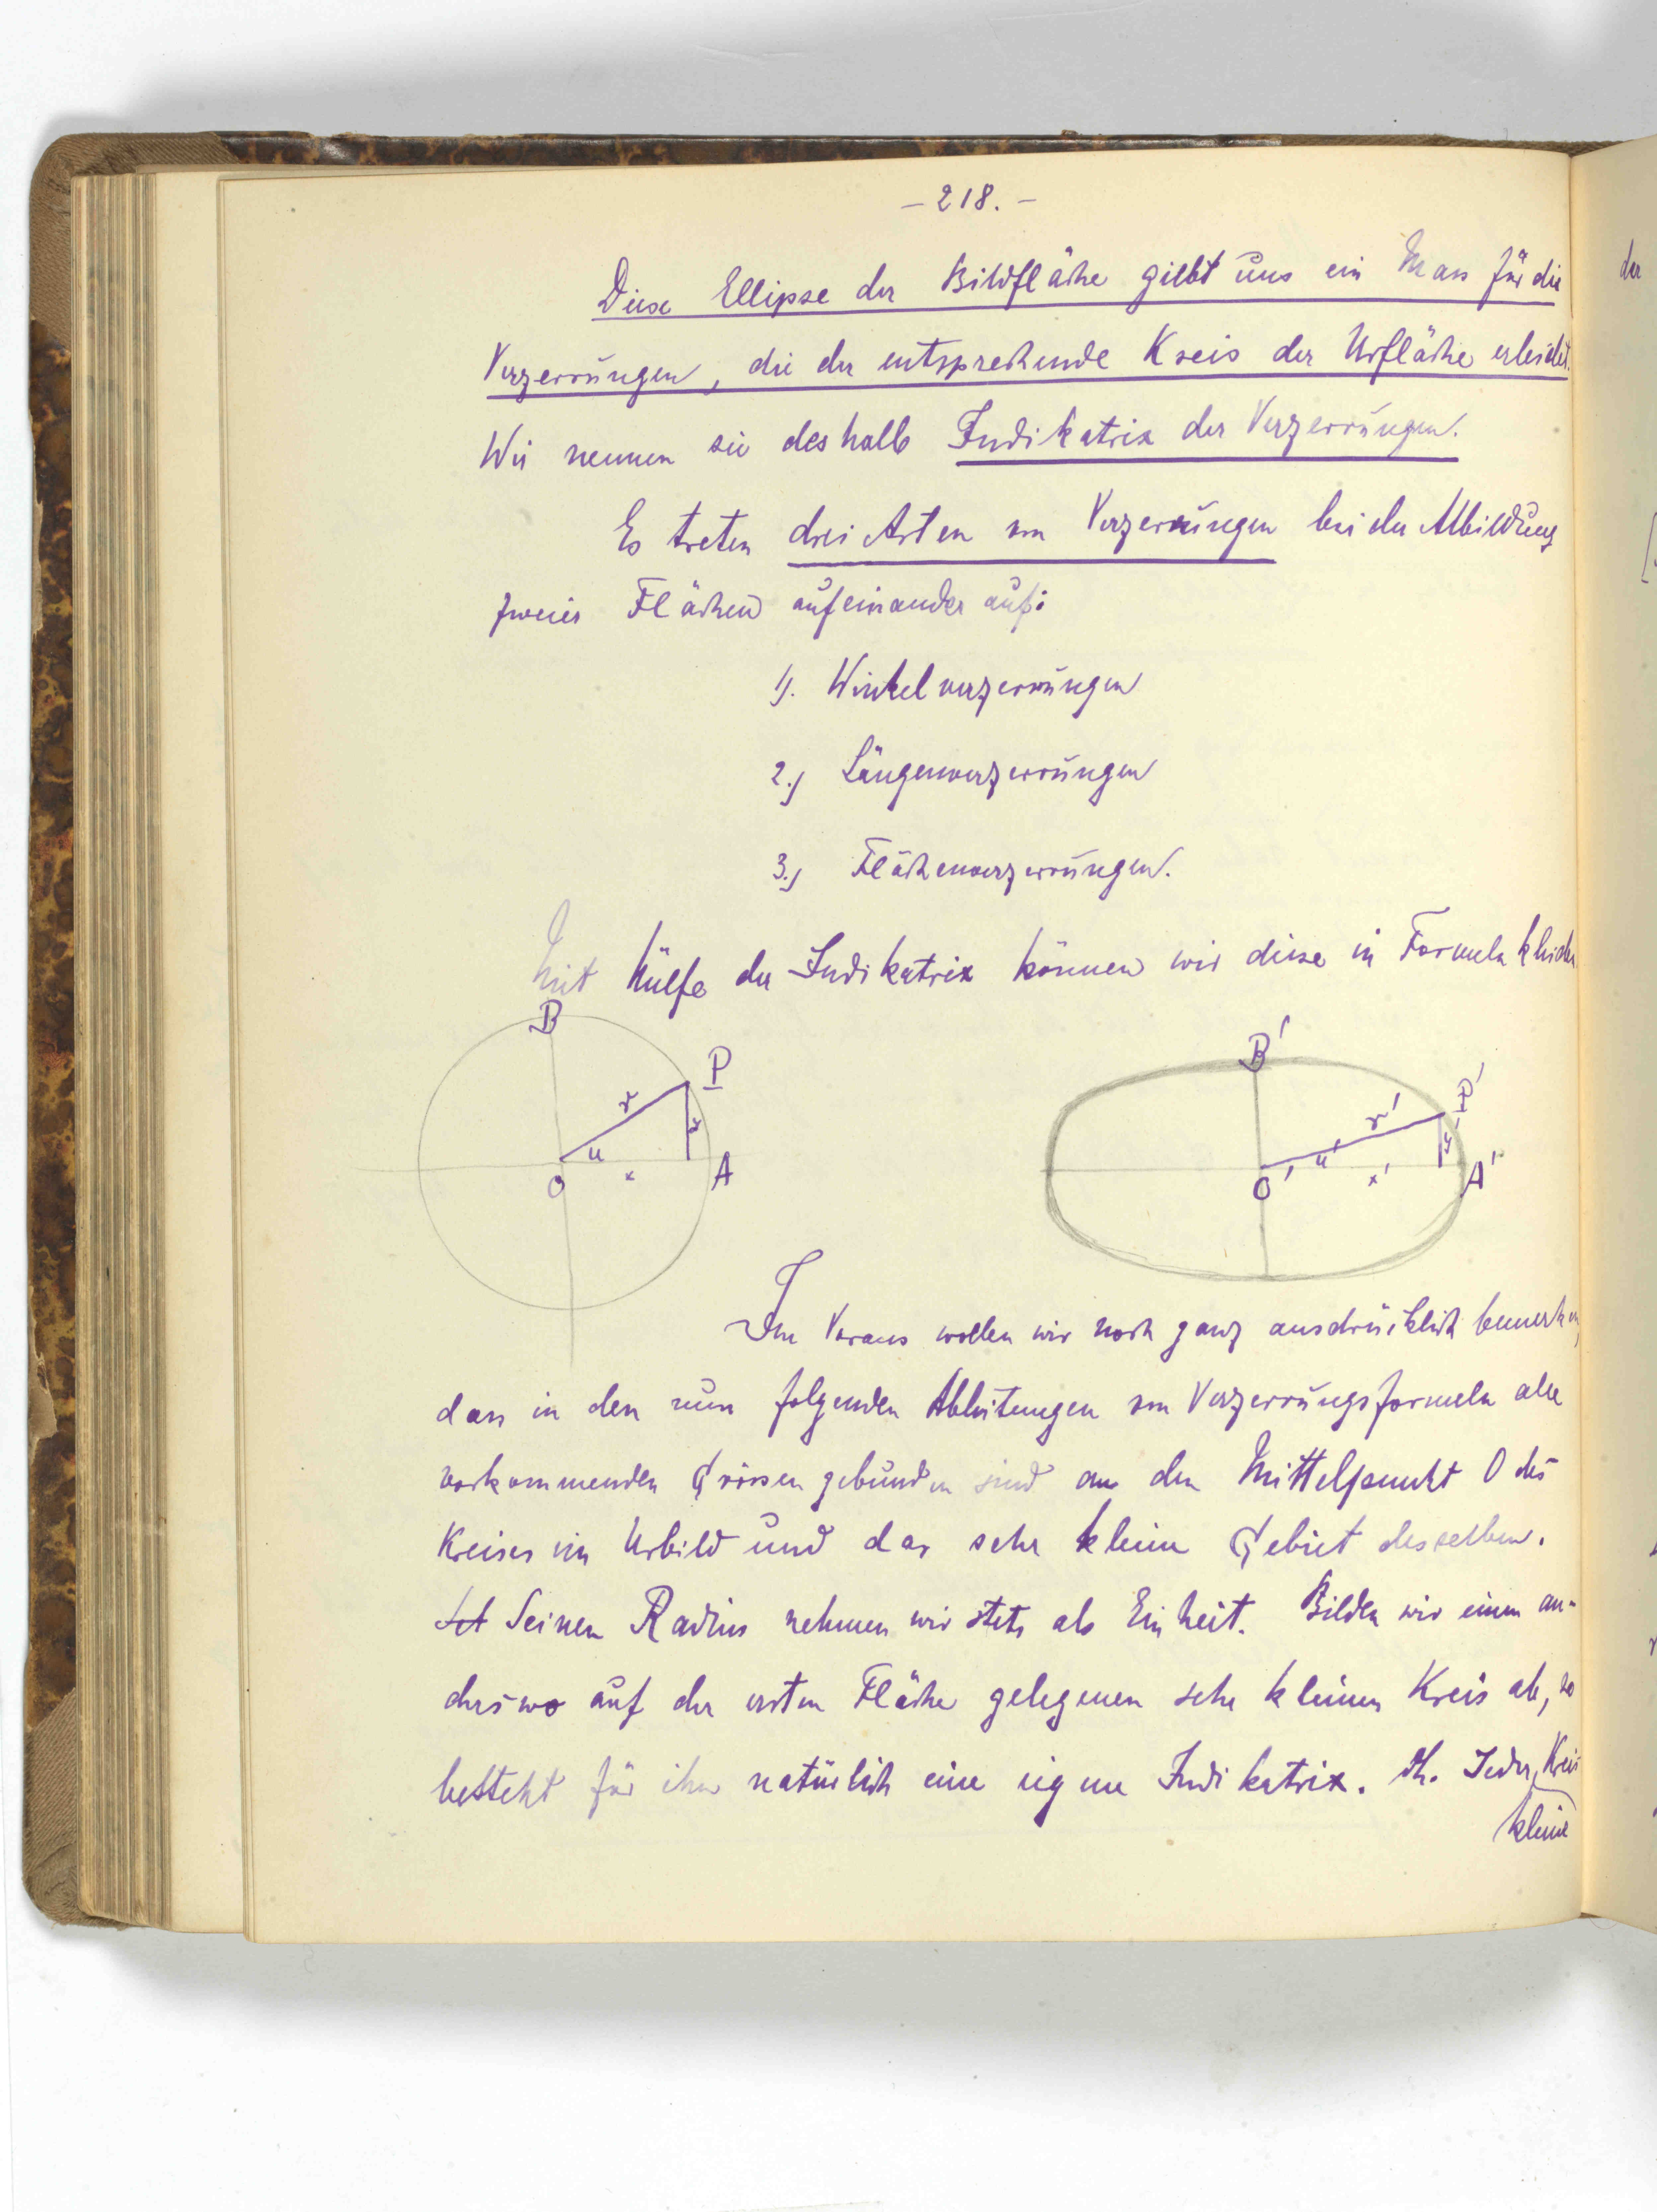 – 218. –
Diese Ellipse der Bildfläche giebt uns ein Mass für die
Verzerrungen, die der entsprechende Kreis der Urfläche erleidet.
Wir nennen sie deshalb Indikatrix der Verzerrungen.
Es treten drei Arten von Verzerrungen bei der Abbildung
zweier Flächen aufeinander auf:
1). Winkelverzerrungen
2.) Längenverzerrungen
3.) Flächenverzerrungen.
Mit Hülfe der Indikatrix können wir diese in Formeln kleiden
B
P
r
y
u
x
O
A
B'
P'
r'
y'
u'
x'
O'
A'
Im Voraus wollen wir noch ganz ausdrücklich bemerken,
dass in den nun folgenden Ableitungen von Verzerrungsformeln alle
vorkommenden Grössen gebunden sind an den Mittelpunkt O des
Kreises im Urbild und das sehr kleine Gebiet desselben.
Seinen Radius nehmen wir stets als Einheit. Bilden wir einen an-
derswo auf der ersten Fläche gelegenen sehr kleinen Kreis ab, so
besteht für ihn natürlich eine eigene Indikatrix. Jeder Kreis
kleine
der